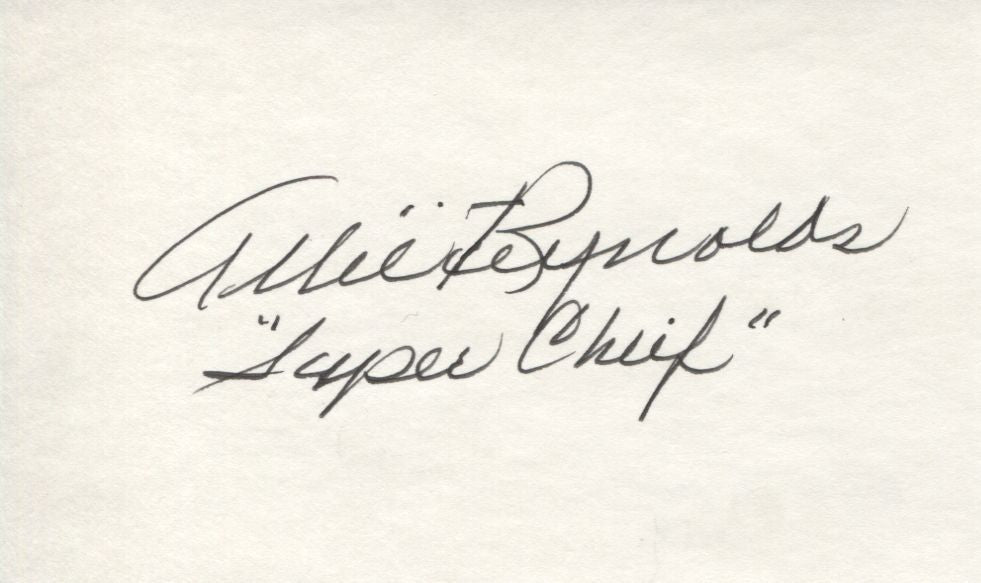 Allie Reynolds
"Super Chief"